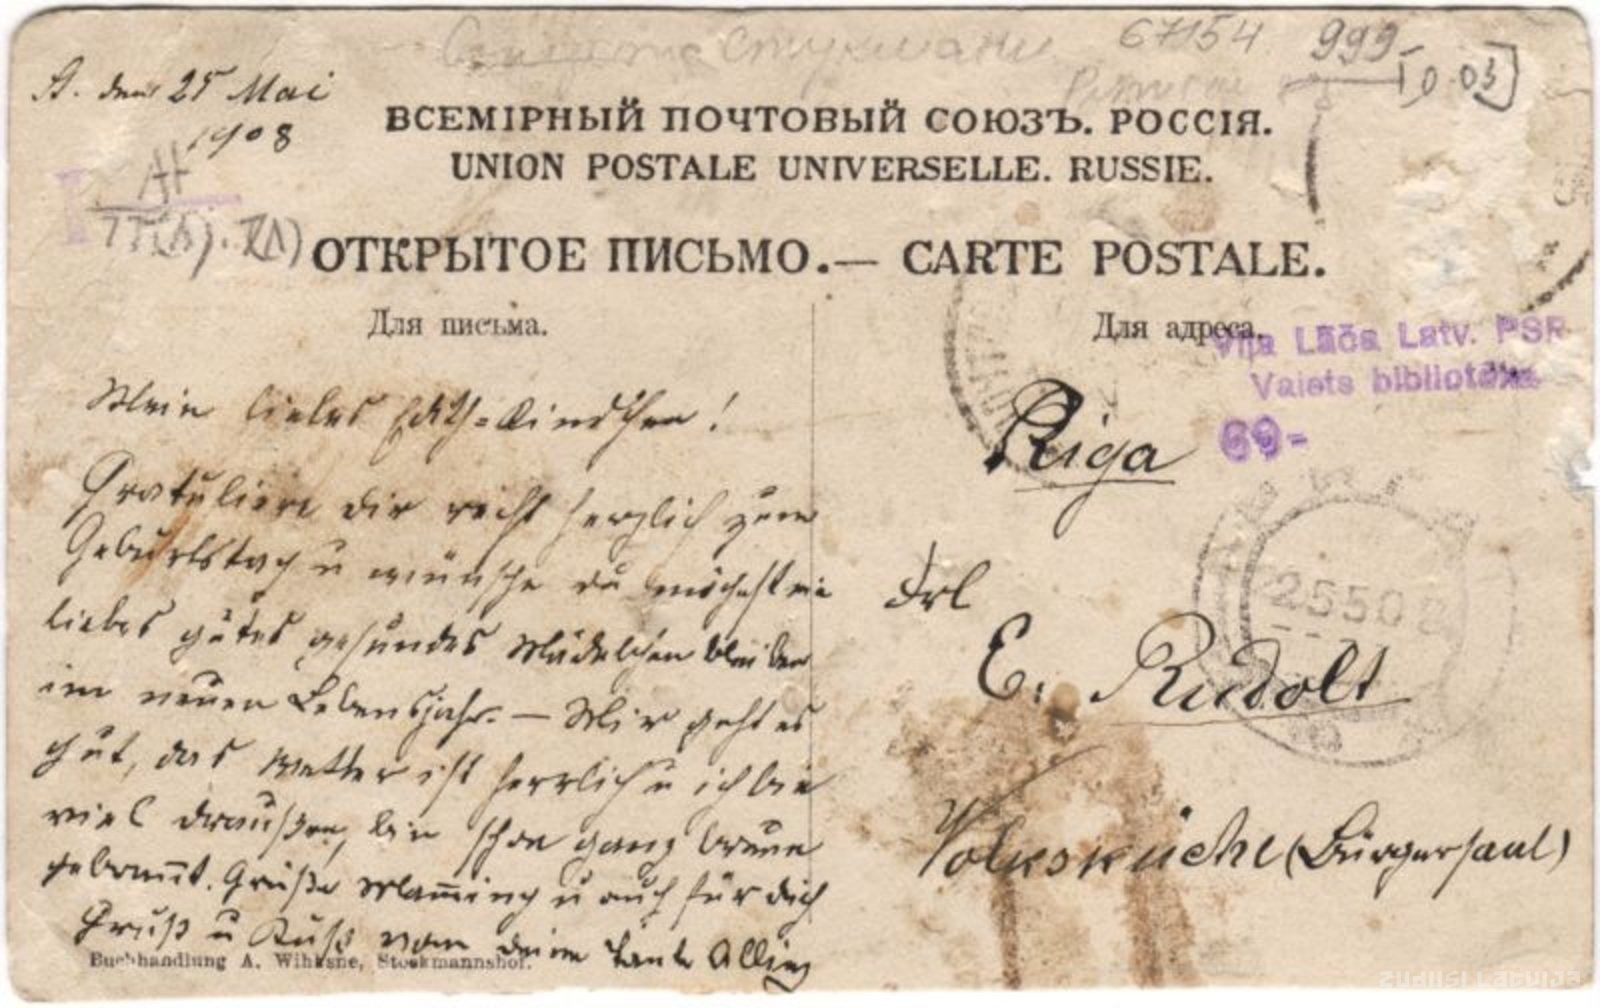 67154 999-
0-03
St. den 25 Mai
1908
ВСЕМІРНЫЙ ПОЧТОВЫЙ СОЮЗЪ. РОССІЯ.
UNION POSTALE UNIVERSELLE. RUSSIE.
ОТКРЫТОЕ ПИСЬМО.— CARTE POSTALE.
Для письма.
Для адреса.
Viļa Lāča Latv. PSR
Valsts bibliotēka
69-
Mein liebes Edith-Kindchen!
Gratuliere dir recht herzlich zum
Geburtstag u wünsche du möchest ein
liebes gutes gesundes Mädelchen bleiben
im neuen Lebensjahr. — Mir geht es
gut, das Wetter ist herrlich u ich bin
viel draußen, bin schon ganz braun
gebrannt. Grüße Mamming u auch für dich
Gruß u Kuß von deine Tante Alling
Buchhandlung A. Wihksne, Stockmannshof.
Riga
Frl
E. Rudolt
Volksküche (Bürgersaal)
25508
zudusi Latvija